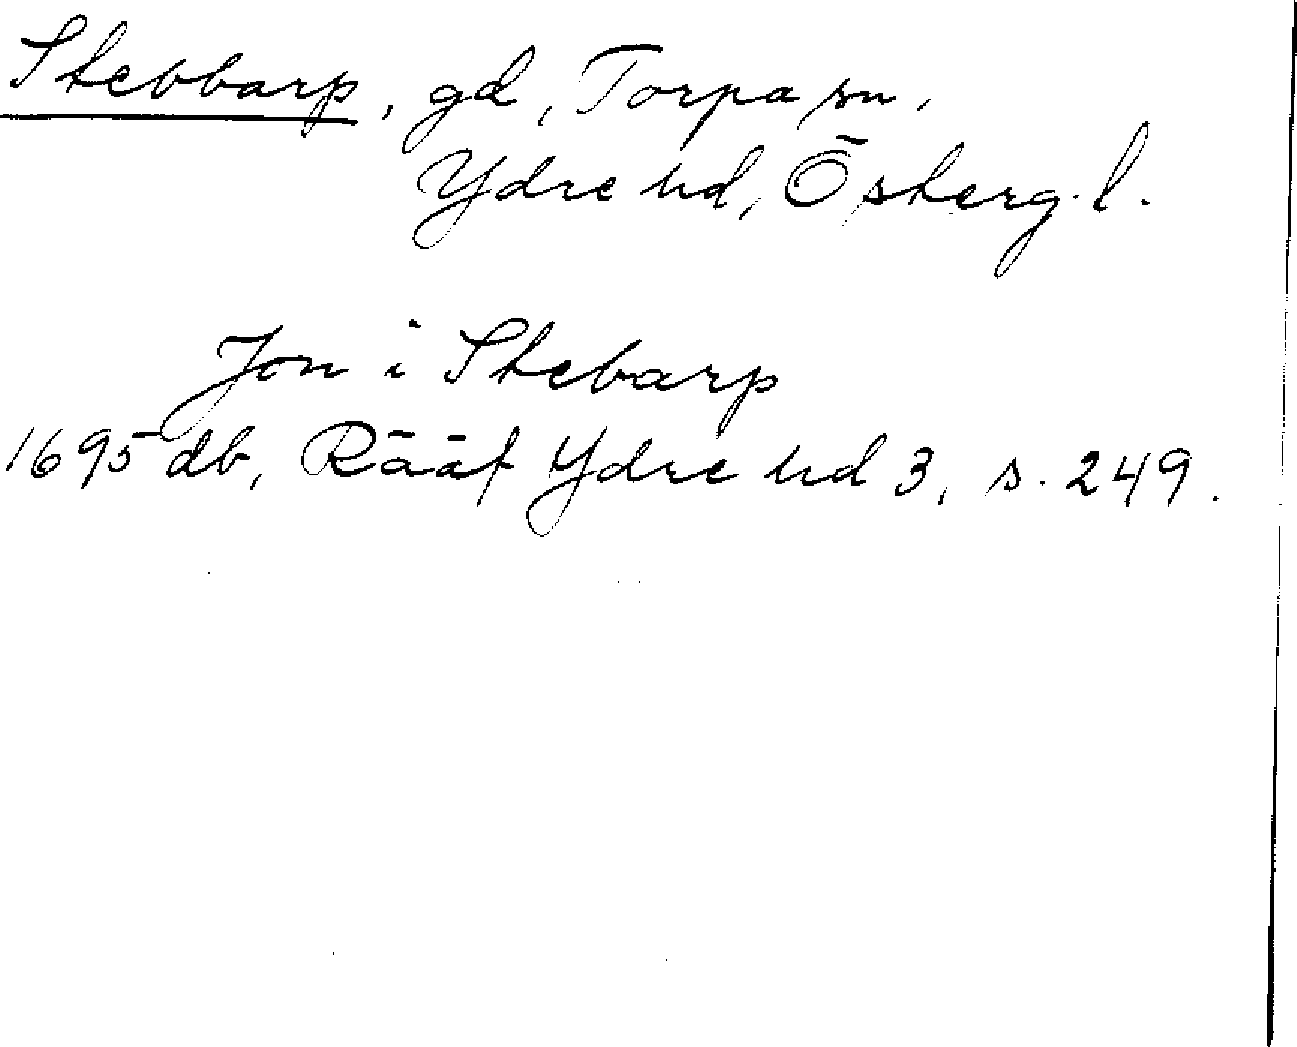 Stebbarp, gd, Torpa sn,
Ydre hd, Österg. l.
Jon i Stebarp
1695 db, Rääf Ydre hd 3, s. 249.